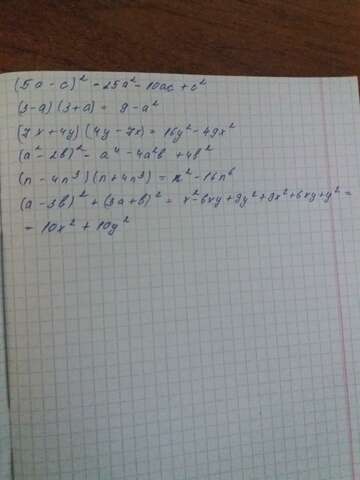 (5a - c)² = 25a² - 10ac + c²
(3-a)(3+a) = 9 - a²
(7x+4y)(4y-7x) = 16y² - 49x²
(a² - 2b)² = a⁴ - 4a²b + 4b²
(n - 4n³)(n + 4n³) = n² - 16n⁶
(a - 3b)² + (3a+b)² = x² - 6xy + 9y² + 9x² + 6xy + y² =
= 10x² + 10y²